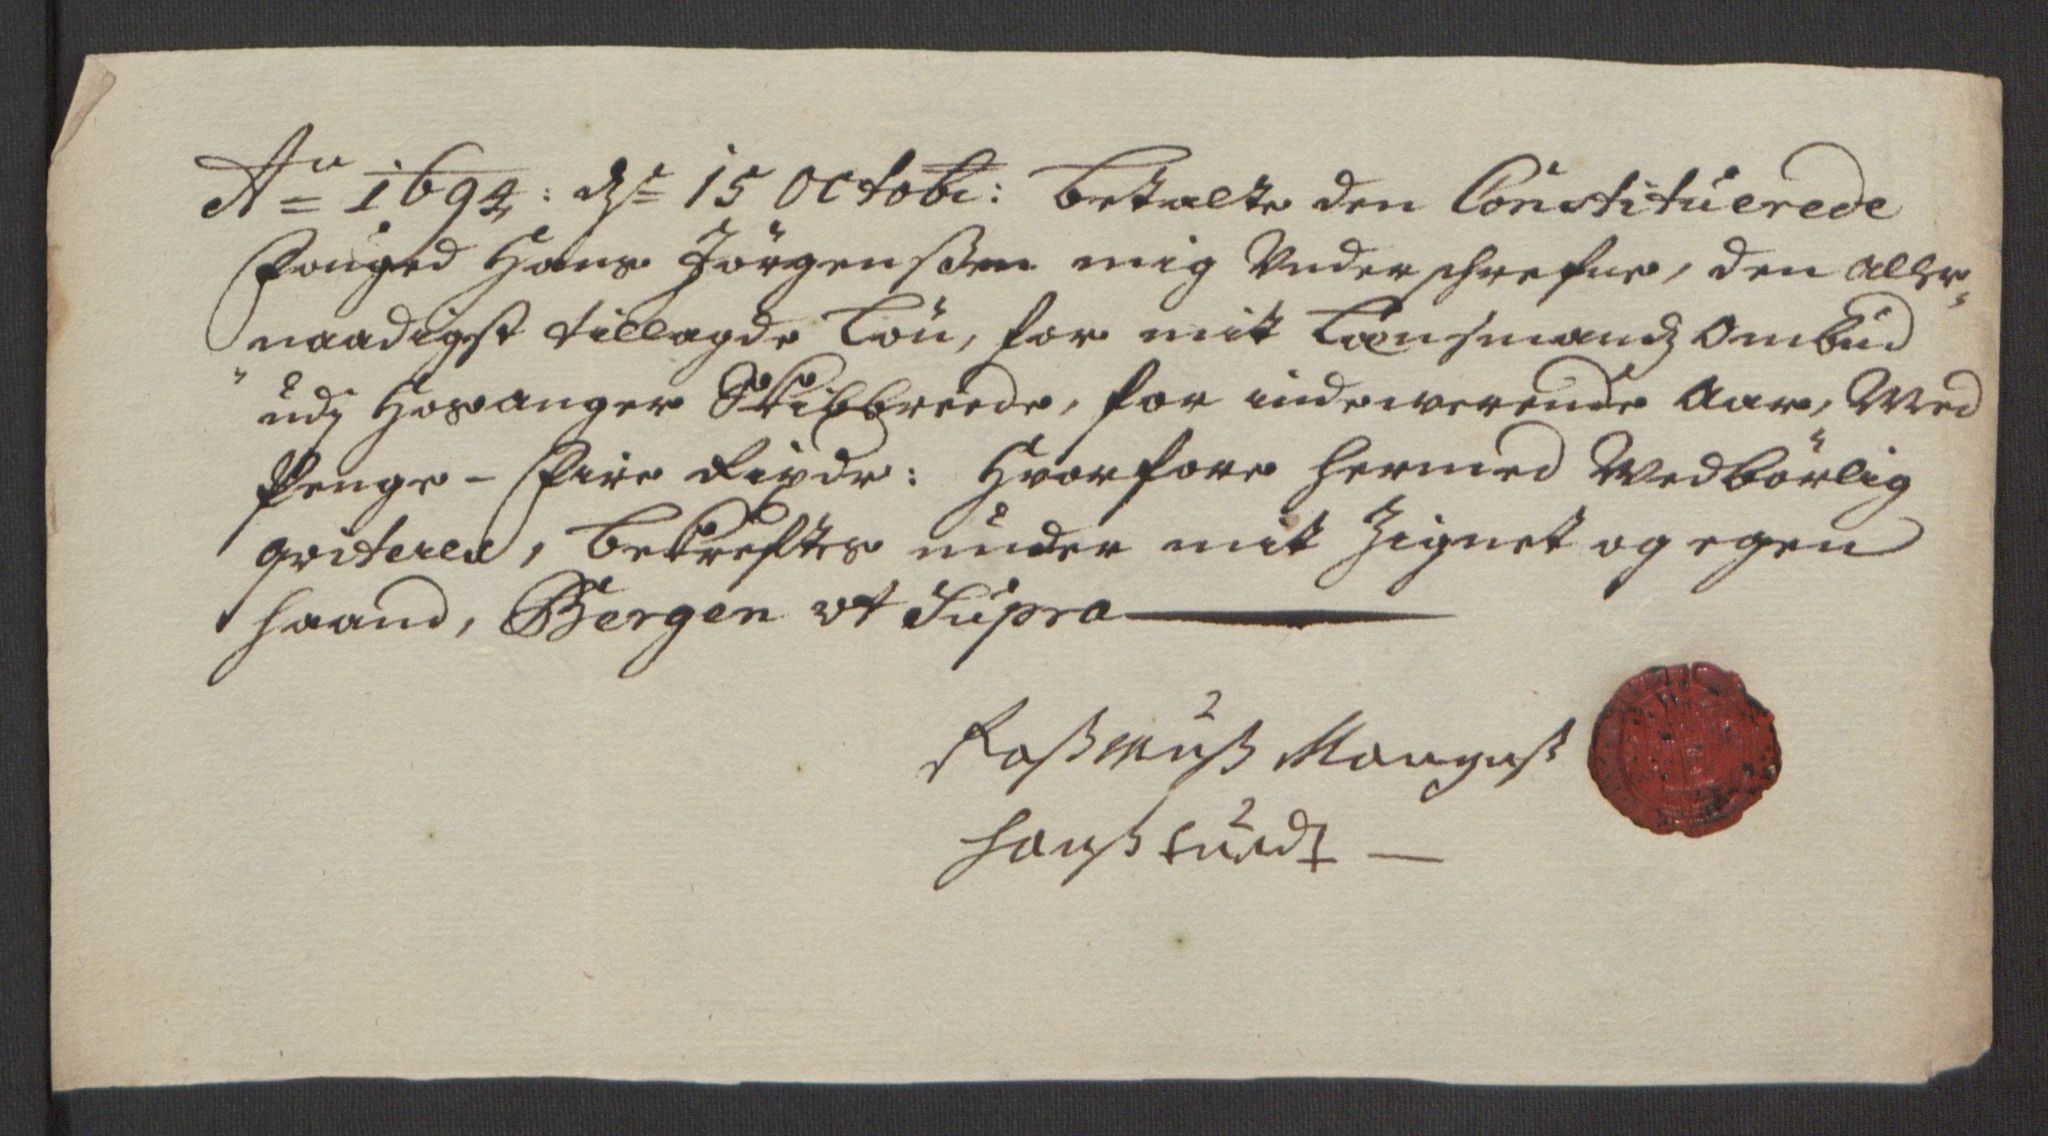 Ao 1694: dn 15 Octobr: betalte den Constituerede
Fouged Hans Jörgenssen mig Underschrefne, den aller-
naadigst tillagde Lön, for mit Lænsmandz Ombud
udj Hosanger Skibbreede, for indeverende Aar, Med
Penge - Fire Rixdr: Hvorfore hermed Wedbörlig
qviteres, bekrefftes under mit Zignet og egen
haand, Bergen ut Supra
Rassmuss Mangnss